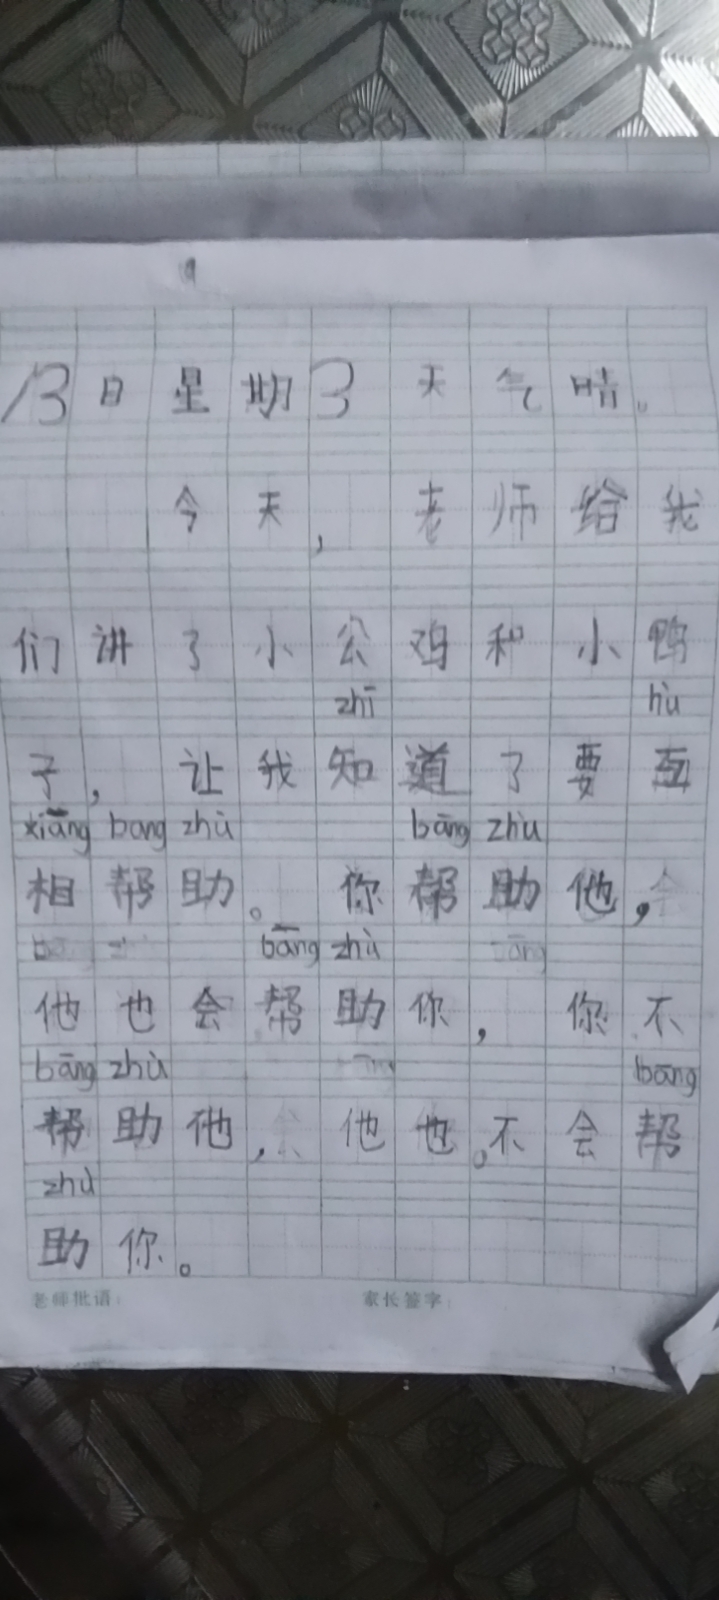 13日星期3 天气晴。
今天，老师给我
们讲了小公鸡和小鸭
zhī hù
子，让我知道了要互
xiāng bang zhù bāng zhù
相帮助。你帮助他，
bāng zhù
他也会帮助你，你不
bāng zhù bāng
帮助他，他也。不会帮
zhù
助你。
老师批语：家长签字：